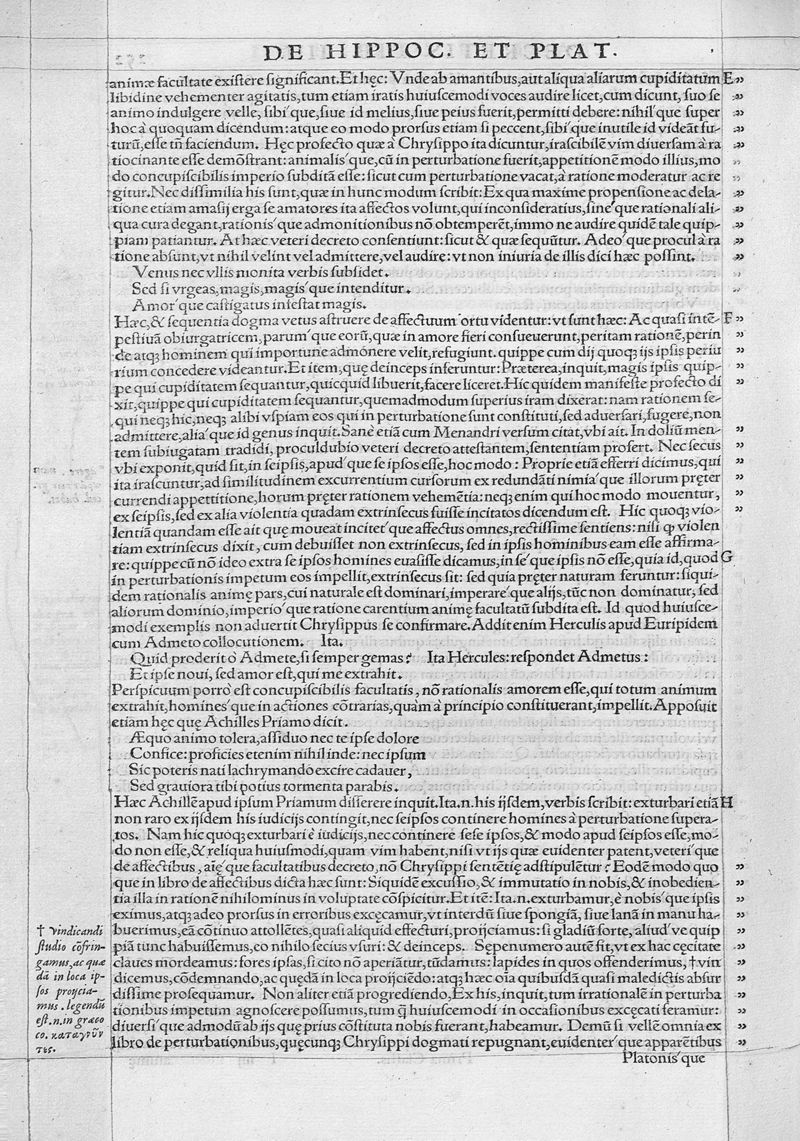 DE HIPPOC. ET PLAT.
animæ facultate existere significant. Et hęc: Vnde ab amantibus, aut aliqua aliarum cupiditatum E „
libidine vehementer agitatis, tum etiam iratis huiuscemodi voces audire licet, cum dicunt, suo se „
animo indulgere velle, sibi'que, siue id melius, siue peius fuerit, permitti debere: nihil'que super „
hoc à quoquam dicendum: atque eo modo prorsus etiam si peccent, sibi'que inutile id videāt fu- „
turū, esse tn̄ faciendum. Hęc profecto quæ à Chrysippo ita dicuntur, irascibilē vim diuersam à ra „
tiocinante esse demōstrant: animalis'que, cū in perturbatione fuerit, appetitionē modo illius, mo „
do concupiscibilis imperio subditā esse: sicut cum perturbatione vacat, à ratione moderatur ac re „
gitur. Nec dissimilia his sunt, quæ in hunc modum scribit: Ex qua maxime propensione ac dela- „
tione etiam amasij erga se amatores ita affectos volunt, qui inconsideratius, sine'que rationali ali- „
qua cura degant, rationis'que admonitionibus nō obtemperēt, immo ne audire quidē tale quip- „
piam patiantur. At hæc veteri decreto consentiunt: sicut & quæ sequūtur. Adeo'que procul à ra „
tione absunt, vt nihil velint vel admittere, vel audire: vt non iniuria de illis dici hæc possint. „
Venus nec vllis monita verbis subsidet. „
Sed si vrgeas, magis, magis'que intenditur. „
Amor'que castigatus infestat magis.
Hæc, & sequentia dogma vetus astruere de affectuum ortu videntur: vt sunt hæc: Ac quasi intē- F „
pestiuā obiurgatricem, parum'que eorū, quæ in amore fieri consueuerunt, peritam rationē, perin „
de atq; hominem qui importune admonere velit, refugiunt. quippe cum dij quoq; ijs ipsis periu „
rium concedere videantur. Et item, quę deinceps inferuntur: Præterea, inquit, magis ipsis quip- „
pe qui cupiditatem sequantur, quicquid libuerit, facere liceret. Hic quidem manifeste profecto di „
xit, quippe qui cupiditatem sequantur, quemadmodum superius iram dixerat: nam rationem se-
qui neq; hic, neq; alibi vspiam eos qui in perturbatione sunt constituti, sed aduersari, fugere, non
admittere, alia'que id genus inquit. Sanè etiā cum Menandri versum citat, vbi ait. In doliū men- „
tem subiugatam tradidi, proculdubio veteri decreto attestantem, sententiam profert. Nec secus „
vbi exponit, quid sit, in seipsis, apud'que se ipsos esse, hoc modo: Proprie etiā efferri dicimus, qui „
ita irascuntur, ad similitudinem excurrentium cursorum ex redundāti nimia'que illorum pręter „
currendi appettitione, horum pręter rationem vehemētia: neq; enim qui hoc modo mouentur, „
ex seipsis, sed ex alia violentia quadam extrinsecus fuisse incitatos dicendum est. Hic quoq; vio- „
lentiā quandam esse ait quę moueat incitet'que affectus omnes, rectissime sentiens: nisi qp violen
tiam extrinsecus dixit, cum debuisset non extrinsecus, sed in ipsis hominibus eam esse affirma-
re: quippe cū nō ideo extra se ipsos homines euasisse dicamus, in se'que ipsis nō esse, quia id, quod G
in perturbationis impetum eos impellit, extrinsecus sit: sed quia pręter naturam feruntur: siqui-
dem rationalis animę pars, cui naturale est dominari, imperare'que alijs, tūc non dominatur, sed
aliorum dominio, imperio'que ratione carentium animę facultatū subdita est. Id quod huiusce-
modi exemplis non aduertit Chrysippus se confirmare. Addit enim Herculis apud Euripidem
cum Admeto collocutionem. Ita.
Quid proderit ò Admete, si semper gemas? Ita Hercules: respondet Admetus:
Et ipse noui, sed amor est, qui me extrahit.
Perspicuum porrò est concupiscibilis facultatis, nō rationalis amorem esse, qui totum animum
extrahit, homines'que in actiones cōtrarias, quàm à principio constituerant, impellit. Apposuit
etiam hęc quę Achilles Priamo dicit.
Æquo animo tolera, assiduo nec te ipse dolore
Confice: proficies etenim nihil inde: nec ipsum
Sic poteris nati lachrymando excire cadauer,
Sed grauiora tibi potius tormenta parabis.
Hæc Achillē apud ipsum Priamum disserere inquit. Ita. n. his ijsdem, verbis scribit: exturbari etiā H
non raro ex ijsdem his iudicijs contingit, nec seipsos continere homines à perturbatione supera-
tos. Nam hic quoq; exturbari è iudicijs, nec continere sese ipsos, & modo apud seipsos esse, mo-
do non esse, & reliqua huiusmodi, quam vim habent, nisi vt ijs quæ euidenter patent, veteri'que
de affectibus, aīę'que facultatibus decreto, nō Chrysippi sentētię adstipulētur? Eodē modo quo „
que in libro de affectibus dicta hæc sunt: Siquidē excussio, & immutatio in nobis, & inobedien- „
tia illa in rationē nihilominus in voluptate cōspicitur. Et itē: Ita. n. exturbamur, è nobis'que ipsis „
eximus, atq; adeo prorsus in erroribus excęcamur, vt interdū siue spongiā, siue lanā in manu ha- „
buerimus, eā cōtinuo attollētes, quasi aliquid effecturi, proijciamus: si gladiū forte, aliud've quip „
piā tunc habuissemus, eo nihilo secius vsuri: & deinceps. Sępenumero autē fit, vt ex hac cęcitate „
claues mordeamus: fores ipsas, si cito nō aperiātur, tūdamus: lapides in quos offenderimus, † vin „
dicemus, cōdemnando, ac quędā in loca proijciēdo: atq; hæc oia quibusdā quasi maledictis absur „
dissime prosequamur. Non aliter etiā progrediendo, Ex his, inquit, tum irrationalē in perturba „
tionibus impetum agnoscere possumus, tum q̄ huiuscemodi in occasionibus excęcati feramur: „
diuersi'que admodū ab ijs quę prius cōstituta nobis fuerant, habeamur. Demū si vellē omnia ex „
libro de perturbationibus, quęcunq; Chrysippi dogmati repugnant, euidenter'que apparētibus „
Platonis'que
† Vindicandi
studio cōfrin-
gamus, ac quæ
dā in loca ip-
sos proijcia-
mus. legendū
est. n. in græco
co. καταγνῦν
τες.